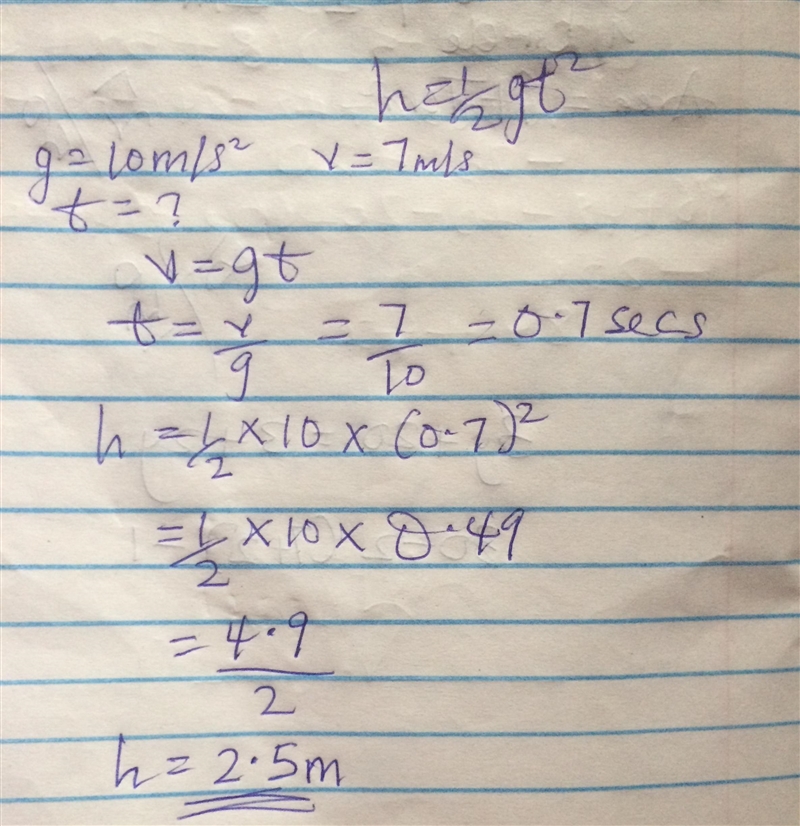 h = 1/2 gt²
g = 10m/s² v = 7m/s
t = ?
v = gt
t = v/g = 7/10 = 0.7 secs
h = 1/2 × 10 × (0.7)²
= 1/2 × 10 × 0.49
= 4.9/2
h = 2.5m